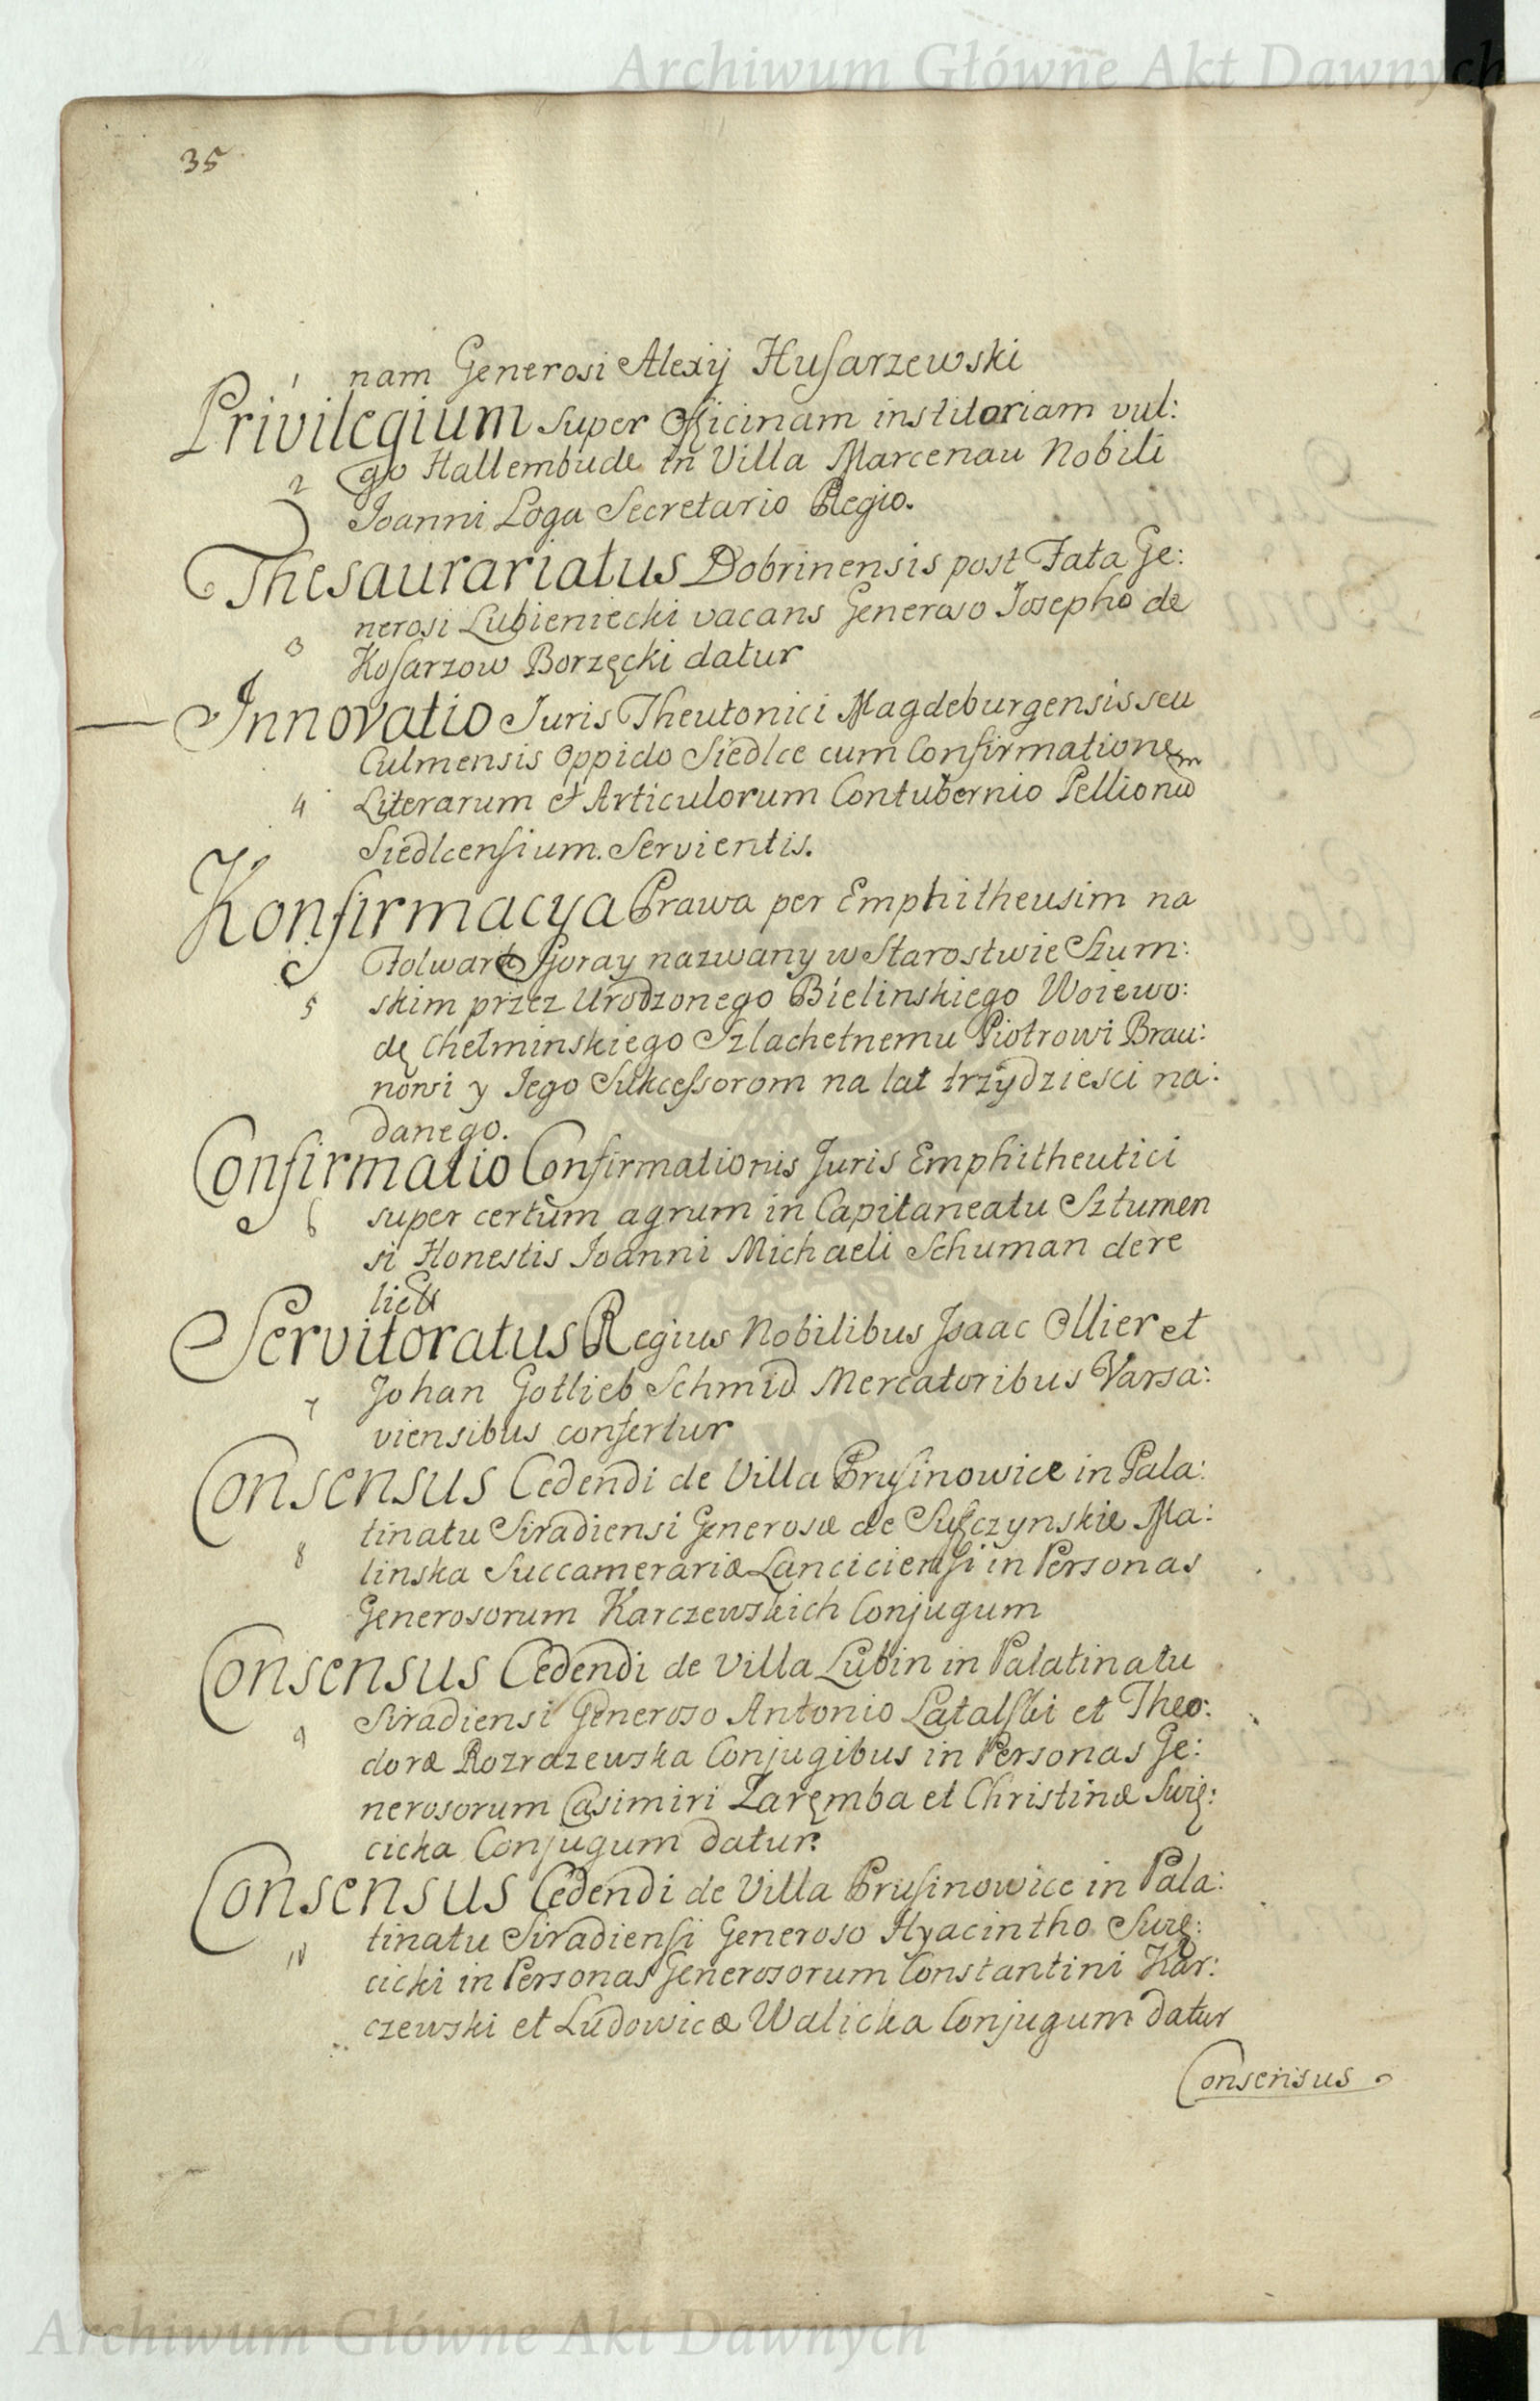 Archiwum Główne Akt Dawnych
35
1 nam Generosi Alexij Husarzewski
Privilegium super Officinam institoriam vul:
go Hallembude in Villa Marcenau Nobili
2 Joanni Loga Secretario Regio.
Thesaurariatus Dobrinensis post Fata Ge:
nerosi Lubieniecki vacans Generoso Josepho de
3 Kosarzow Borzęcki datur
Innovatio Juris Theutonici Magdeburgensis seu
Culmensis Oppido Siedlce cum Confirmatione
4 Literarum et Articulorum Contubernio Pellionum
Siedlcensium Servientis.
Konfirmacya Prawa per Emphitheusim na
Folwark Goray nazwany w Starostwie Sztum:
5 skim przez Urodzonego Bielinskiego Woiewo:
dę Chełminskiego Szlachetnemu Piotrowi Brau:
nowi y Jego Sukcessorom na lat trzydziesci na:
danego.
Confirmatio Confirmationis Juris Emphitheutici
6 super certum agrum in Capitaneatu Sztumen
si Honestis Joanni Michaeli Schuman dere
licti
Servitoratus Regius Nobilibus Isaac Ollier et
7 Johan Gottlieb Schmid Mercatoribus Varsa:
viensibus confertur
Consensus Cedendi de Villa Prusinowice in Pala:
tinatu Siradiensi Generosæ de Sulczynskie Ma:
8 linska Succamerariæ Lanciciensi in Personas
Generosorum Karczewskich Conjugum
Consensus Cedendi de Villa Lubin in Palatinatu
Siradiensi Generoso Antonio Latalski et Theo:
9 doræ Rozrazewska Conjugibus in Personas Ge:
nerosorum Casimiri Zaręmba et Christinæ Swię:
cicka Conjugum datur.
Consensus Cedendi de Villa Prusinowice in Pala:
tinatu Siradiensi Generoso Hyacintho Swię:
10 cicki in Personas Generosorum Constantini Kar:
czewski et Ludowicæ Walicka Conjugum datur
Consensus
Archiwum Główne Akt Dawnych